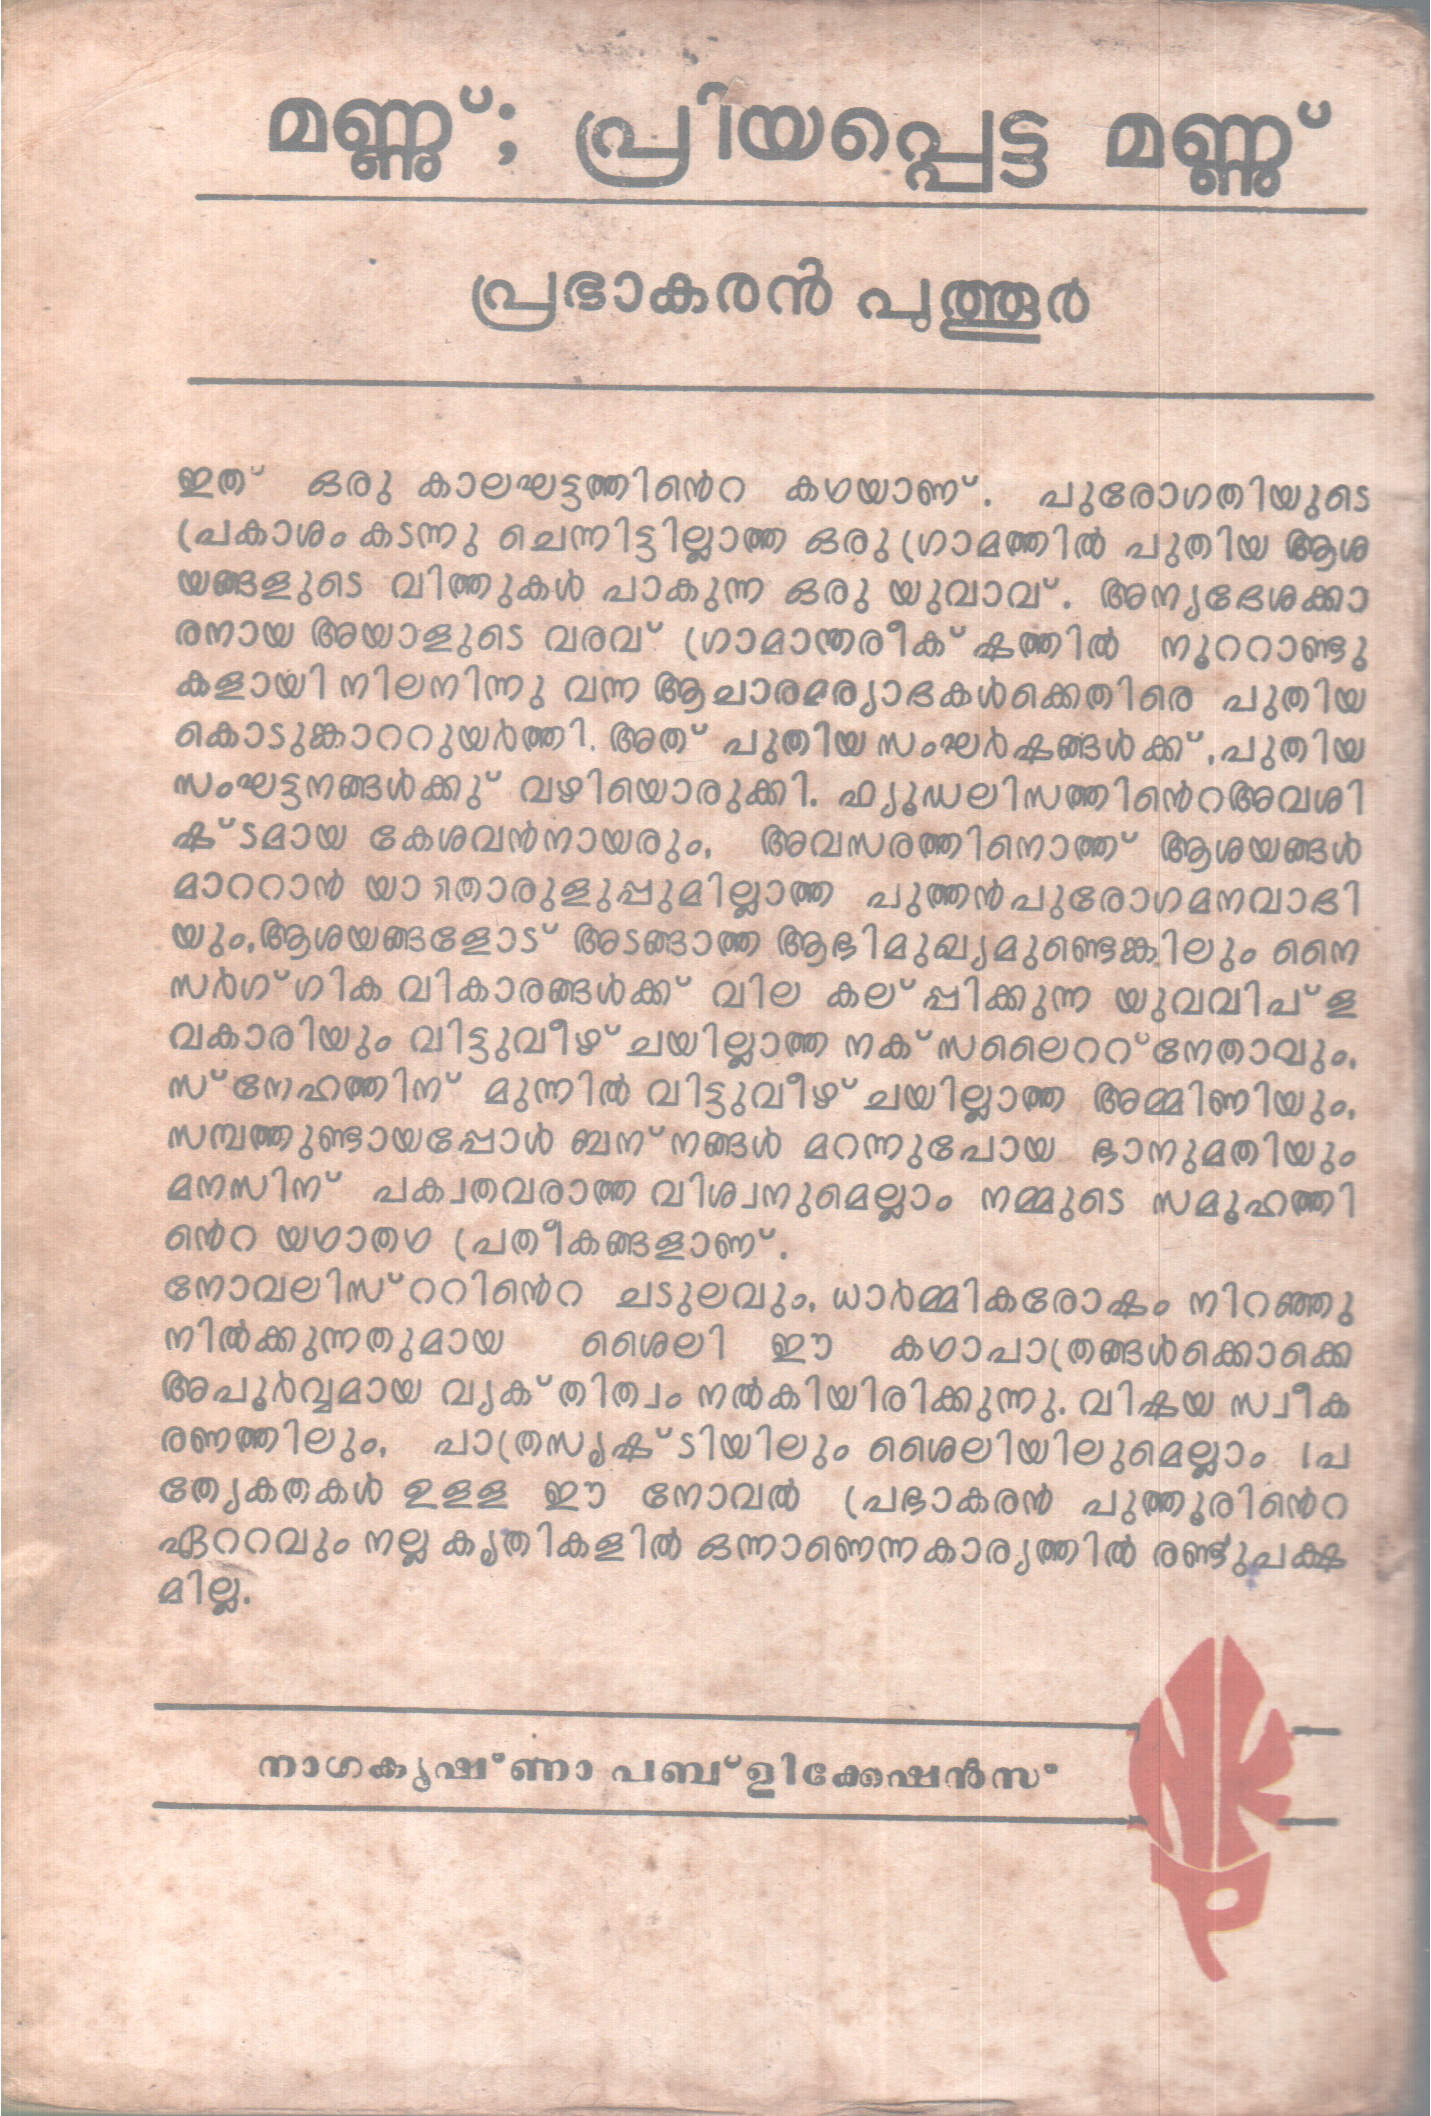 മണ്ണു്; പ്രിയപ്പെട്ട മണ്ണു്
പ്രഭാകരൻ പുത്തൂർ
ഇത് ഒരു കാലഘട്ടത്തിൻെറ കഥയാണ്. പുരോഗതിയുടെ
പ്രകാശം കടന്നു ചെന്നിട്ടില്ലാത്ത ഒരു ഗ്രാമത്തിൽ പുതിയ ആശ
യങ്ങളുടെ വിത്തുകൾ പാകുന്ന ഒരു യുവാവ്. അന്യദേശക്കാ
രനായ അയാളുടെ വരവ് ഗ്രാമാന്തരീക്ഷത്തിൽ നൂററാണ്ടു
കളായി നിലനിന്നു വന്ന ആചാരമര്യാദകൾക്കെതിരെ പുതിയ
കൊടുങ്കാററുയർത്തി. അത് പുതിയ സംഘർഷങ്ങൾക്ക്, പുതിയ
സംഘട്ടനങ്ങൾക്കു് വഴിയൊരുക്കി. ഫ്യൂഡലിസത്തിൻെറഅവശി
ഷ്ടമായ കേശവൻനായരും, അവസരത്തിനൊത്ത് ആശയങ്ങൾ
മാററാൻ യാതൊരുളുപ്പുമില്ലാത്ത പുത്തൻപുരോഗമനവാദി
യും, ആശയങ്ങളോട് അടങ്ങാത്ത ആഭിമുഖ്യമുണ്ടെങ്കിലും നൈ
സർഗ്ഗിക വികാരങ്ങൾക്ക് വില കല്പ്പിക്കുന്ന യുവവിപ്ള
വകാരിയും വിട്ടുവീഴ്ചയില്ലാത്ത നക്സലൈററ്നേതാവും,
സ്നേഹത്തിന് മുന്നിൽ വിട്ടുവീഴ്ചയില്ലാത്ത അമ്മിണിയും,
സമ്പത്തുണ്ടായപ്പോൾ ബന്നങ്ങൾ മറന്നുപോയ ഭാനുമതിയും
മനസിന് പക്വതവരാത്ത വിശ്വനുമെല്ലാം നമ്മുടെ സമൂഹത്തി
ൻെറ യഥാതഥ പ്രതീകങ്ങളാണ്.
നോവലിസ്ററിൻെറ ചടുലവും, ധാർമ്മികരോഷം നിറഞ്ഞു
നിൽക്കുന്നതുമായ ശൈലി ഈ കഥാപാത്രങ്ങൾക്കൊക്കെ
അപൂർവ്വമായ വ്യക്തിത്വം നൽകിയിരിക്കുന്നു. വിഷയ സ്വീക
രണത്തിലും, പാത്രസൃഷ്ടിയിലും ശൈലിയിലുമെല്ലാം പ്ര
ത്യേകതകൾ ഉളള ഈ നോവൽ പ്രഭാകരൻ പുത്തൂരിൻെറ
ഏററവും നല്ല കൃതികളിൽ ഒന്നാണെന്നകാര്യത്തിൽ രണ്ടുപക്ഷ
മില്ല.
നാഗകൃഷ്ണാ പബ്ളിക്കേഷൻസ്
NKP